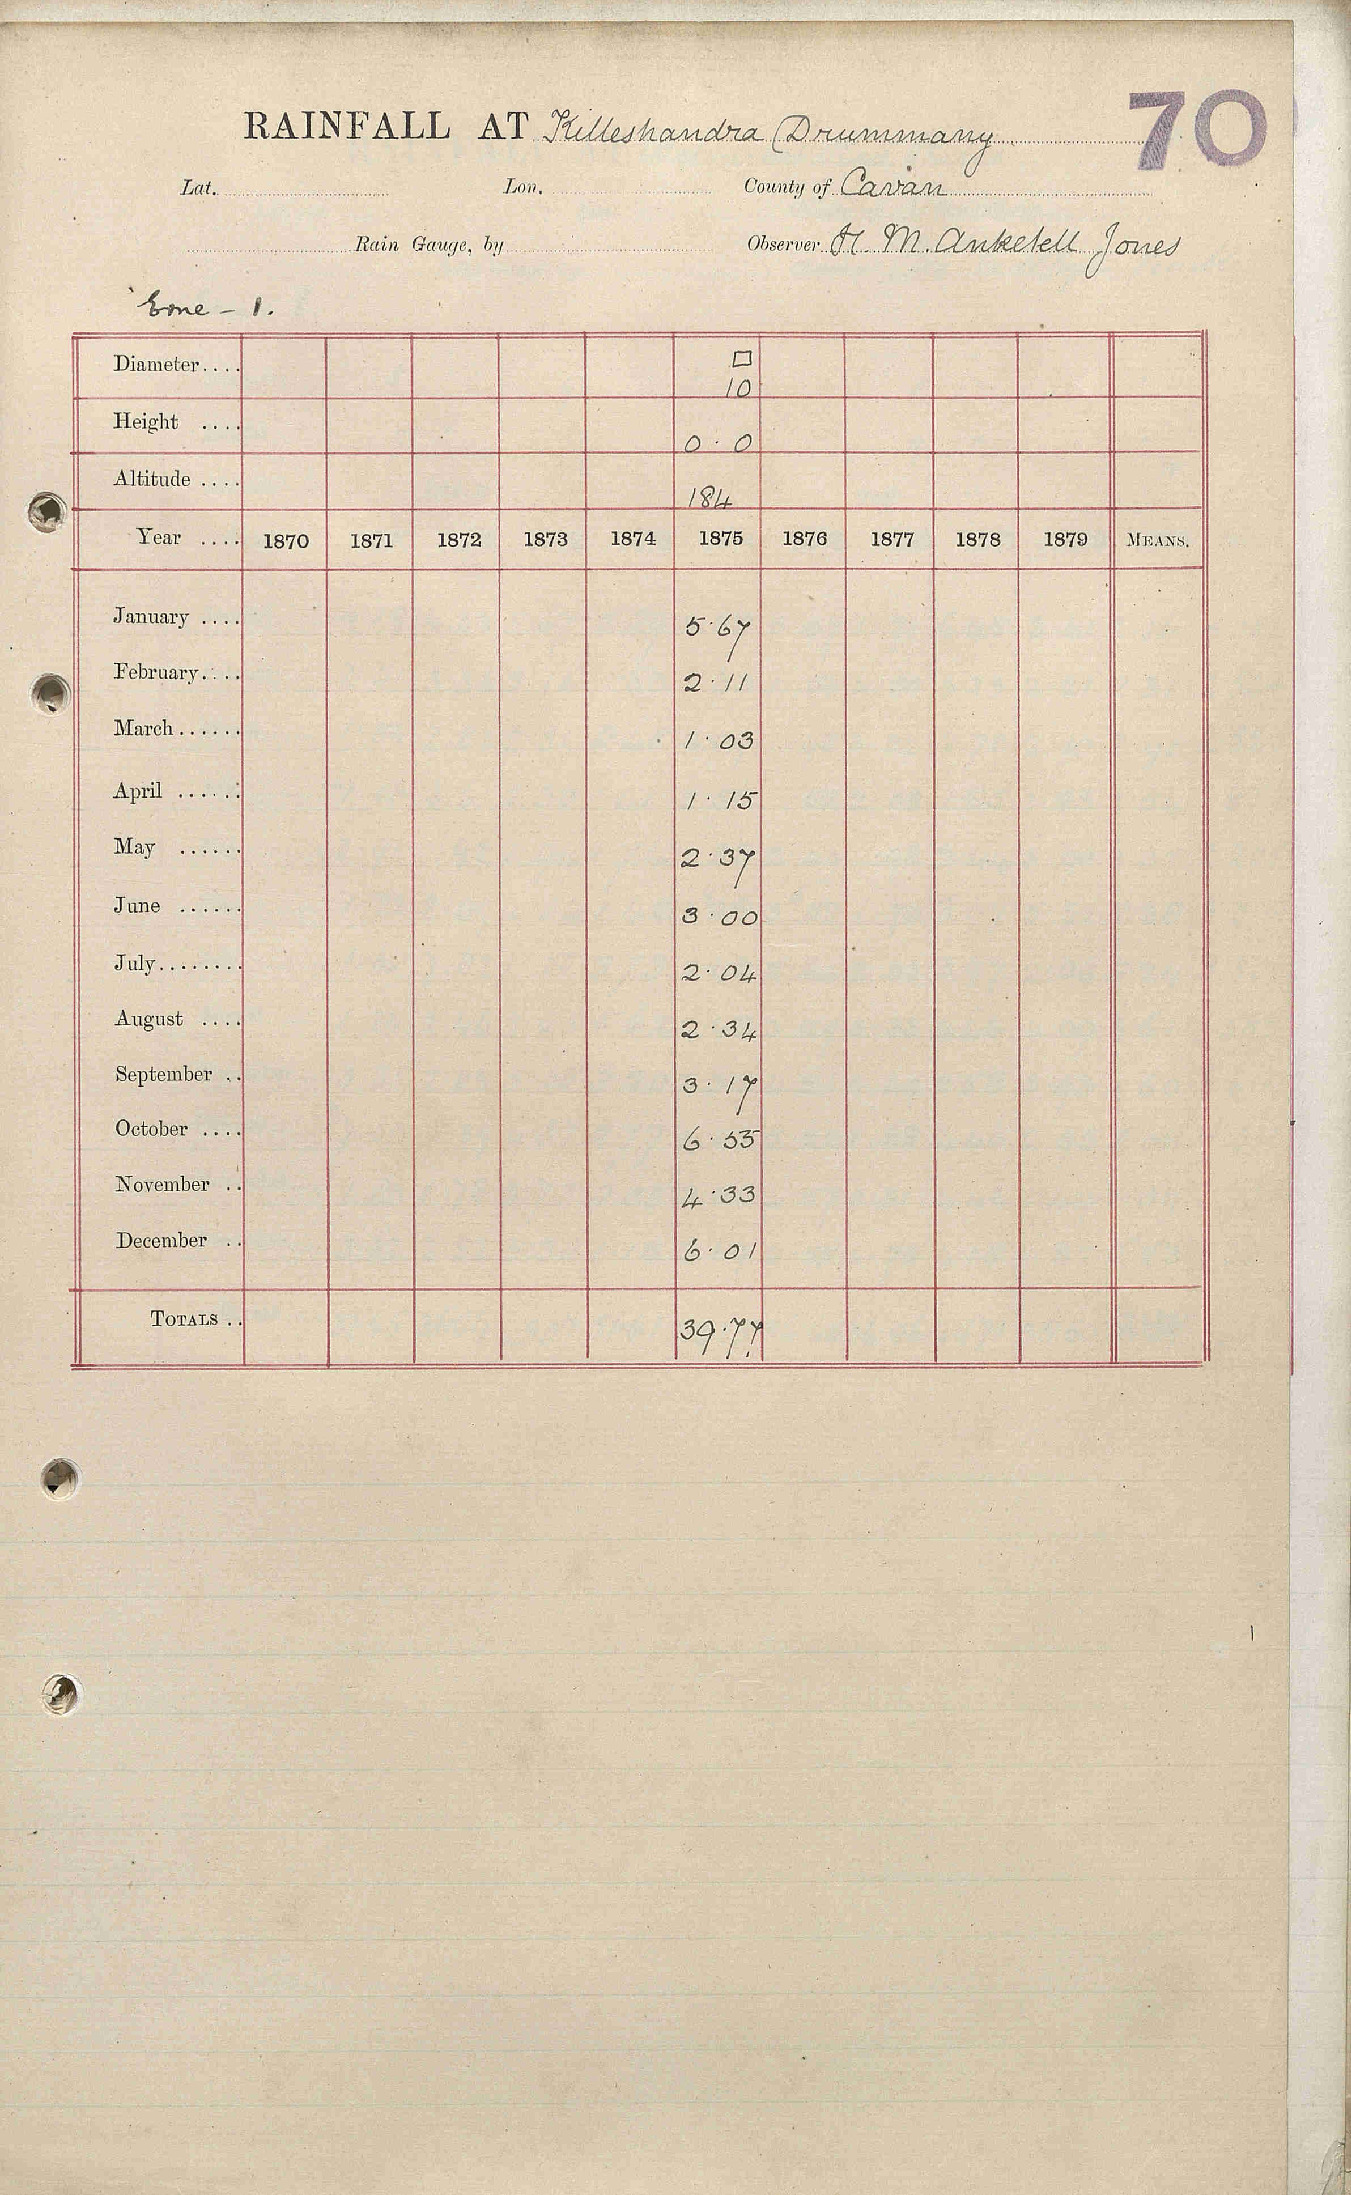 70
RAINFALL AT Killeshandra (Drummany
Lat. Lon. County of Cavan
Rain Gauge, by Observer H. M. Anketell Jones
Erne - 1.
Diameter.... □ 10
Height .... 0·0
Altitude .... 184
Year .... 1870 1871 1872 1873 1874 1875 1876 1877 1878 1879 MEANS.
January .... 5·67
February.... 2·11
March...... 1·03
April ...... 1·15
May ...... 2·37
June ...... 3·00
July........ 2·04
August .... 2·34
September .. 3·17
October .... 6·55
November .. 4·33
December .. 6·01
TOTALS .. 39·77